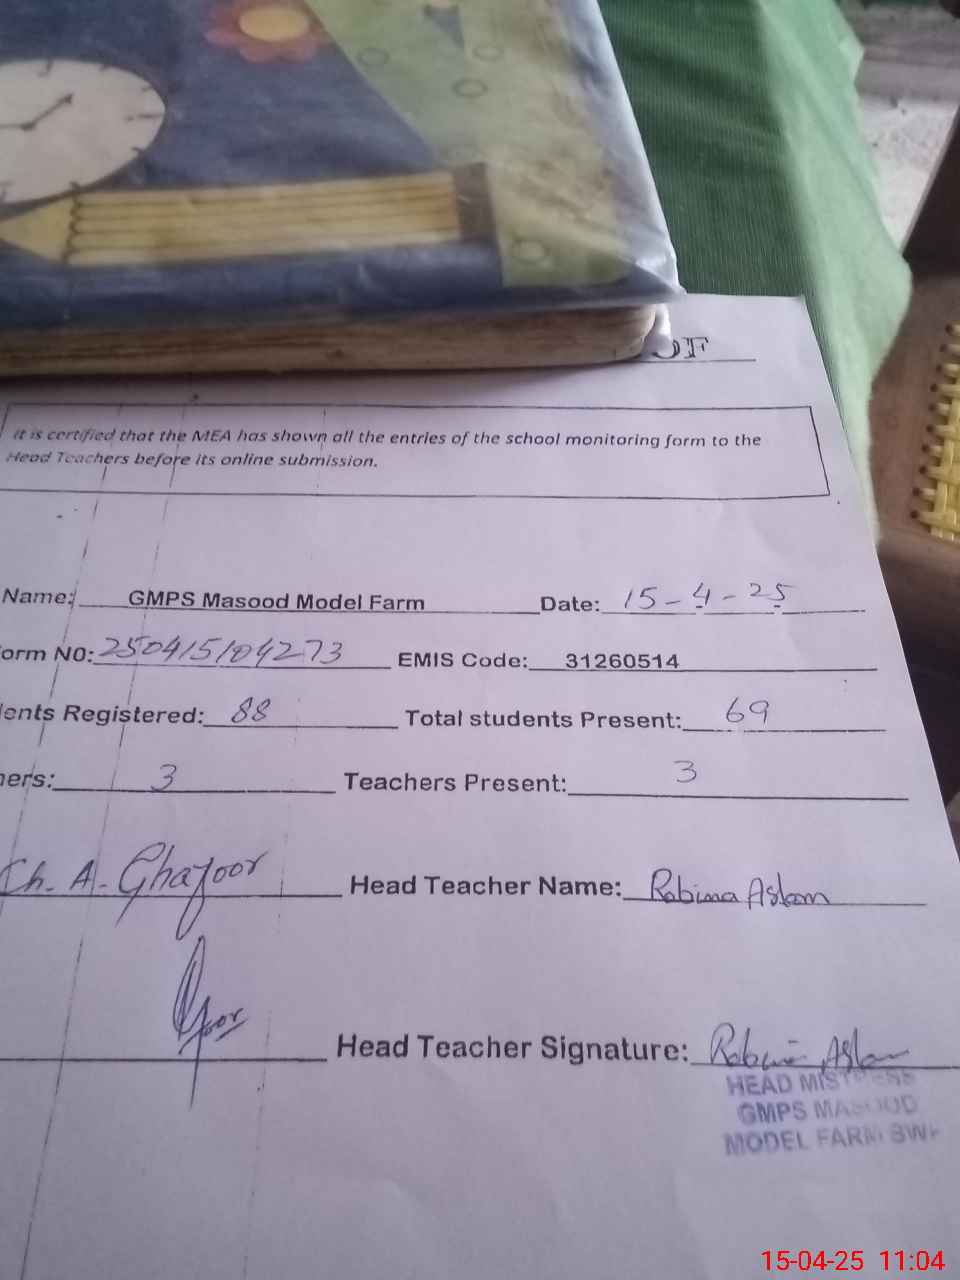 OF
It is certified that the MEA has shown all the entries of the school monitoring form to the
Head Teachers before its online submission.
Name: GMPS Masood Model Farm Date: 15-4-25
orm N0: 250415104273 EMIS Code: 31260514
ents Registered: 88 Total students Present: 69
ers: 3 Teachers Present: 3
Ch. A. Ghafoor Head Teacher Name: Robina Aslam
Head Teacher Signature: Robina Aslam
HEAD MISTRESS
GMPS MASOOD
MODEL FARM BWP
15-04-25 11:04